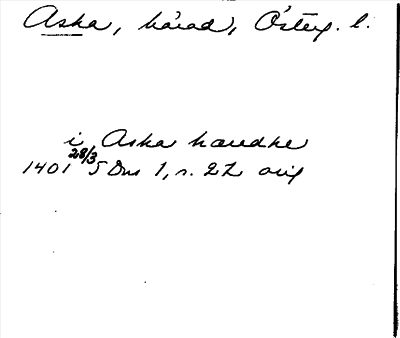 Aska, härad, Österg. l.
i Aska haredhe
1401 28/3 SDns 1, s. 22 orig